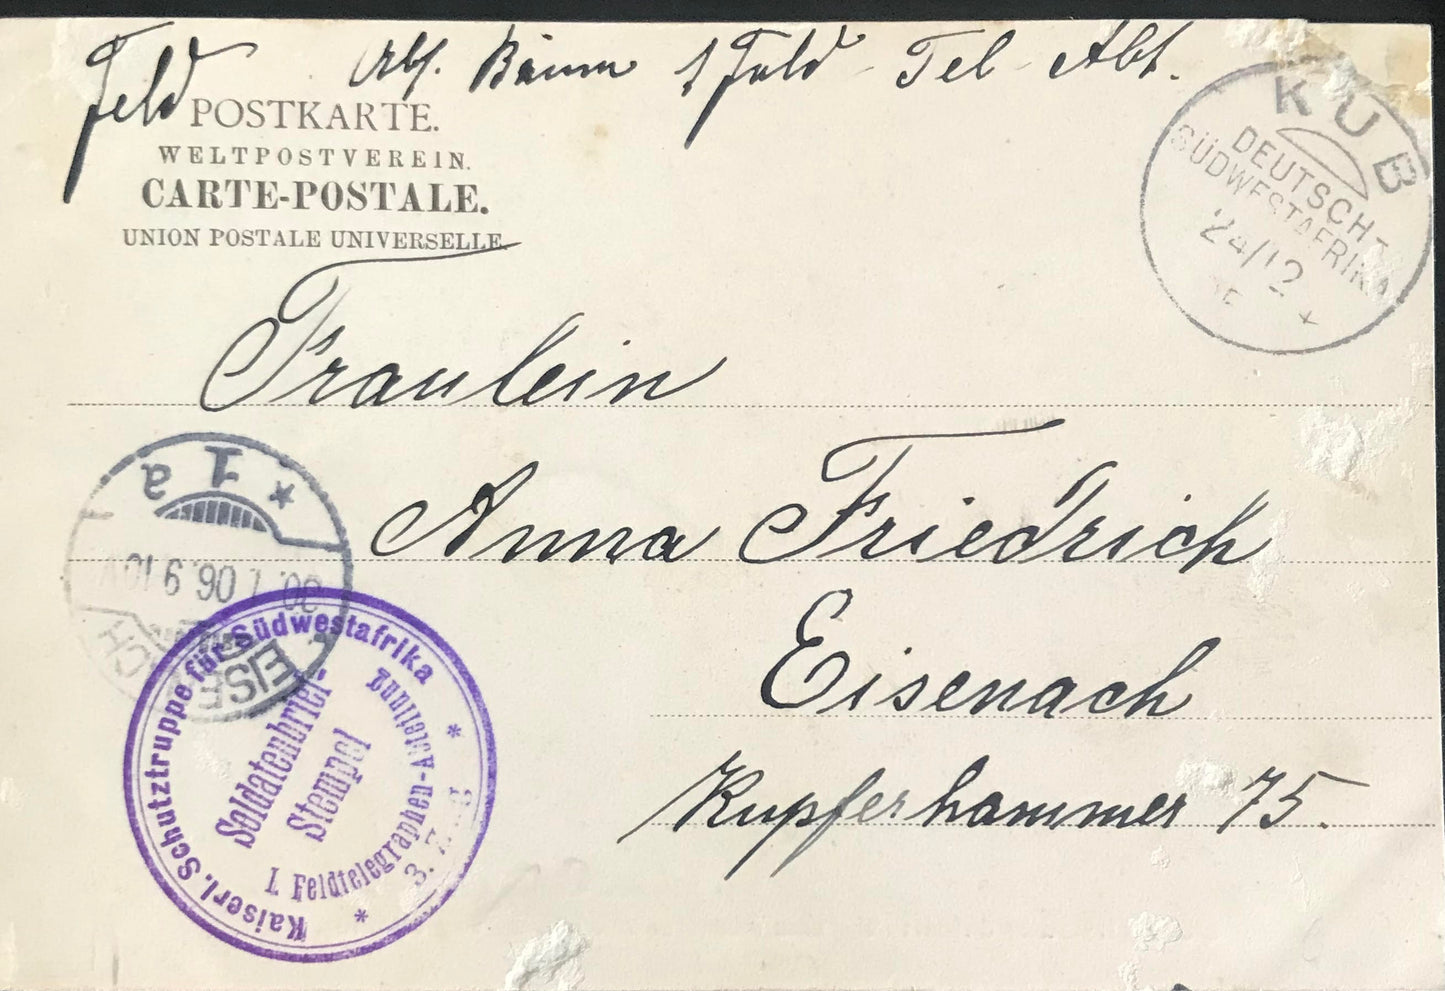 Feld Alf. Bäum 1 Feld-Tel-Abt.
POSTKARTE.
WELTPOSTVEREIN.
CARTE-POSTALE.
UNION POSTALE UNIVERSELLE.
KUB
DEUTSCH-
SÜDWESTAFRIKA
24/12
*
Fräulein
Anna Friedrich
Eisenach
Kupferhammer 75.
EISENACH
* 1 a
Kaiserl. Schutztruppe für Südwestafrika
Soldatenbrief-
Stempel
I. Feldtelegraphen-Abteilung
* *